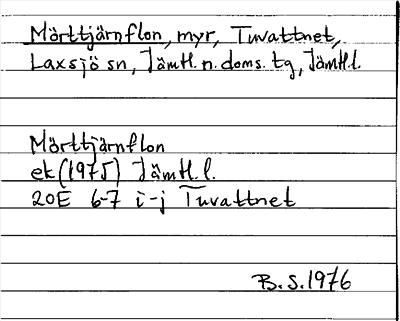 Mörttjärnflon, myr, Tuvattnet,
Laxsjö sn, Jämtl. n. doms. tg, Jämtl.l.
Mörttjärnflon
ek (1975) Jämtl. l.
20E 6-7 i-j Tuvattnet
B.S. 1976